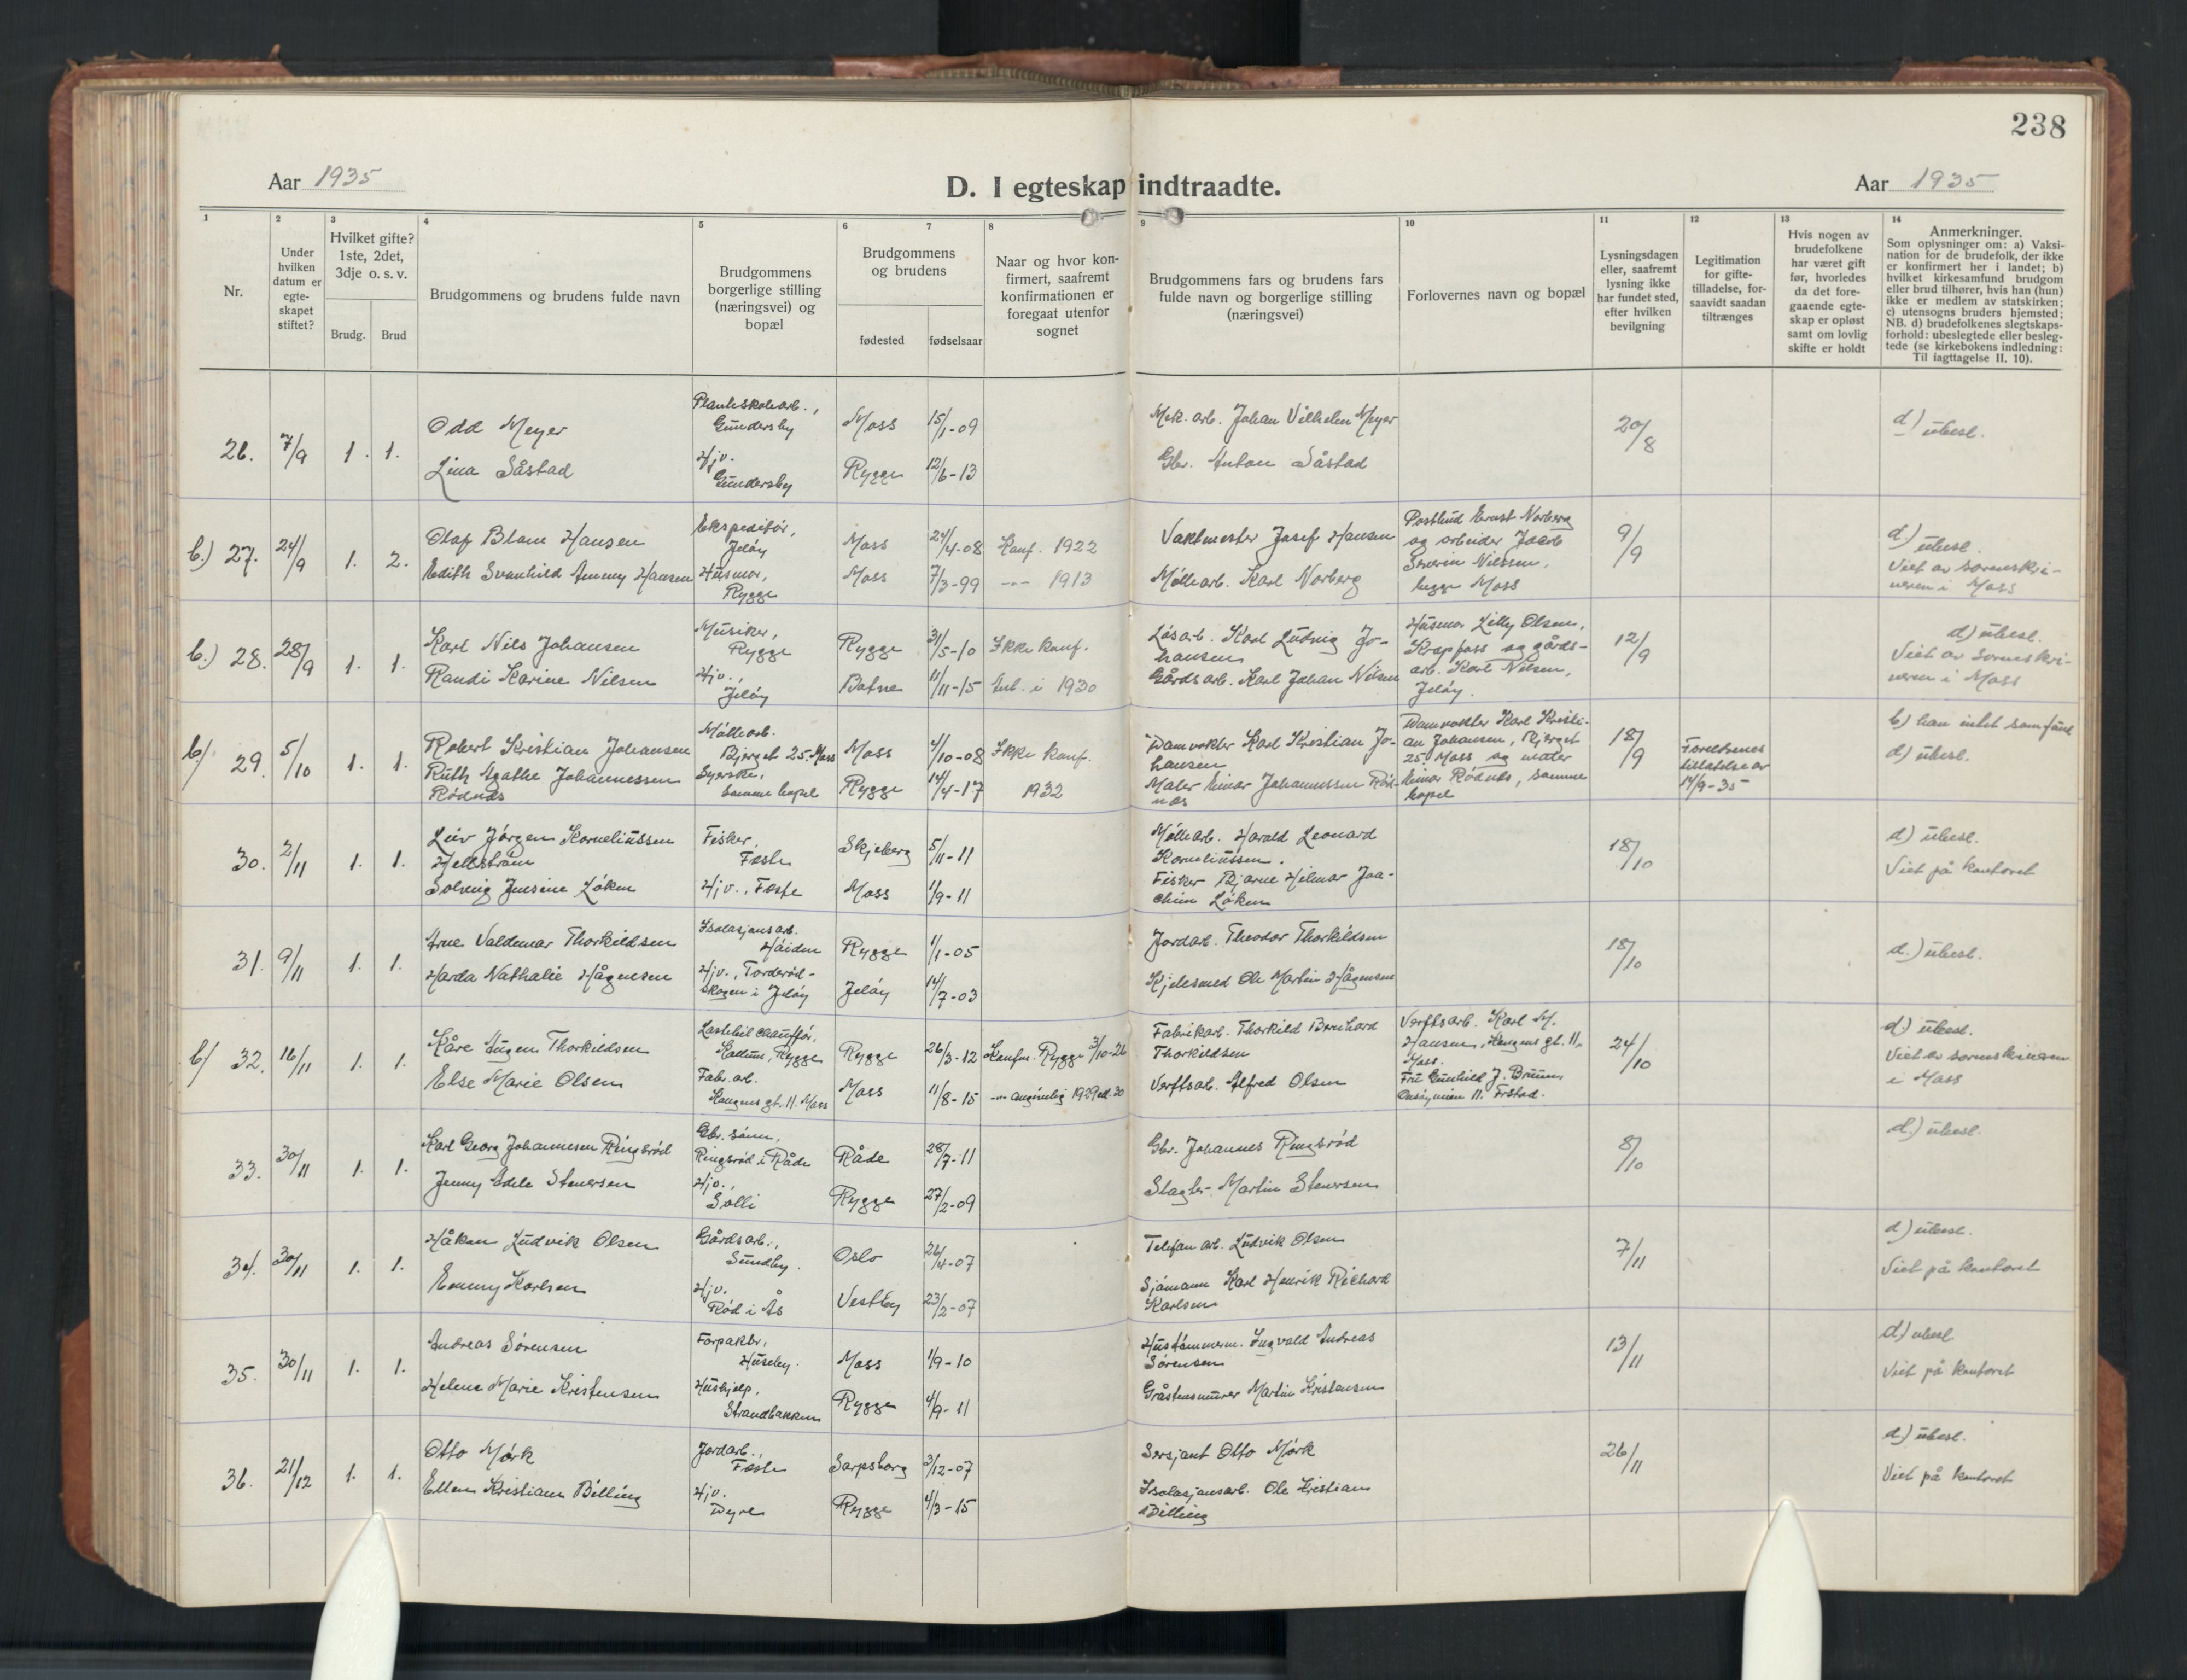 238
Aar 1935
D. I egteskap indtraadte.
Aar 1935
1
Nr.
2
Under
hvilken
datum er
egte-
skapet
stiftet?
3
Hvilket gifte?
1ste, 2det,
3dje o. s. v.
Brudg.
Brud
4
Brudgommens og brudens fulde navn
5
Brudgommens
borgerlige stilling
(næringsvei) og
bopæl
6
7
Brudgommens
og brudens
fødested
fødselsaar
8
Naar og hvor kon-
firmert, saafremt
konfirmationen er
foregaat utenfor
sognet
9
Brudgommens fars og brudens fars
fulde navn og borgerlige stilling
(næringsvei)
10
Forlovernes navn og bopæl
11
Lysningsdagen
eller, saafremt
lysning ikke
har fundet sted,
efter hvilken
bevilgning
12
Legitimation
for gifte-
tilladelse, for-
saavidt saadan
tiltrænges
13
Hvis nogen av
brudefolkene
har været gift
før, hvorledes
da det fore-
gaaende egte-
skap er opløst
samt om lovlig
skifte er holdt
14
Anmerkninger.
Som oplysninger om: a) Vaksi-
nation for de brudefolk, der ikke
er konfirmert her i landet; b)
hvilket kirkesamfund brudgom
eller brud tilhører, hvis han (hun)
ikke er medlem av statskirken;
c) utensogns bruders hjemsted;
NB. d) brudefolkenes slegtskaps-
forhold: ubeslegtede eller besleg-
tede (se kirkebokens indledning:
Til iagttagelse II. 10).
26. 7/9 1. 1.
Odd Meyer
Lina Såstad
Planteskolearb.,
Gundersby
Hjv.
Gundersby
Moss 15/1-09
Rygge 12/6-13
Mek. arb. Johan Vilhelm Meyer
Gbr. Anton Såstad
20/8
d) ubesl.
b.) 27. 24/9 1. 2.
Olaf Blom Hansen
Edith Svanhild Ammy Hansen
Ekspeditør,
Jeløy
Husmor,
Rygge
Moss 24/4-08 Konf. 1922
Moss 7/3-99 --- 1913
Vaktmester Josef Hansen
Møllearb. Karl Norberg
Postbud Ernst Norberg
og arbeider Jacob
Severin Nilssen,
begge Moss
9/9
d.) ubesl.
Viet av sorenskri-
veren i Moss
b.) 28. 28/9 1. 1.
Karl Nils Johansen
Randi Karine Nilsen
Musiker,
Rygge
Hjv.,
Jeløy
Rygge 31/5-10 Ikke konf.
Botne 11/11-15 i 1930
Løsarb. Karl Ludvig Jo-
hansen
Gårdsarb. Karl Johan Nilsen
Husmor Lilly Olsen,
Krapfoss og gårds-
arb. Karl Nilsen,
Jeløy.
12/9
d) ubesl.
Viet av Sorenskri-
veren i Moss
b/ 29. 5/10 1. 1.
Robert Kristian Johansen
Ruth Agathe Johannessen
Rødnes
Møllearb.
Bjerget 25. Moss
Syerske,
Samme bopel
Moss 4/10-08 Ikke konf.
Rygge 14/4-17 1932
Damvokter Karl Kristian Jo-
hansen
Maler Einar Johannessen Rød-
nes
Damvokter Karl Kristi-
an Johansen, Bjerget
25. Moss og maler
Einar Rødnes, samme
bopel
18/9
Foreldrenes
tillatelse av
14/9-35
b) han intet samfund
d) ubesl.
30. 2/11 1. 1.
Leiv Jørgen Korneliussen
Hellstrøm
Solveig Jensine Løken
Fisker,
Fosle
Hjv., Fosle
Skjeberg 5/11-11
Moss 1/9-11
Møllearb. Harald Leonard
Korneliussen.
Fisker Bjarne Hilmar Joa-
chim Løken
18/10
d) ubesl.
Viet på kontoret
31. 9/11 1. 1.
Arne Valdemar Thorkildsen
Harda Nathalie Hågensen
Isolasjonsarb.
Høiden
Hjv., Torderød-
skogen i Jeløy
Rygge 1/1-05
Jeløy 14/7-03
Jordarb. Theodor Thorkildsen
Kjelesmed Ole Martin Hågensen
18/10
d.) ubesl.
b/ 32. 16/11 1. 1.
Kåre Eugen Thorkildsen
Else Marie Olsen
Lastebil chauffør,
Kollen, Rygge
Fabr. arb.
Kongens gt. 11. Moss
Rygge 26/3-12 Konfm. Rygge 3/10-26
Moss 11/8-15 --- angivelig 1929 ell. 30
Fabrikarb. Thorkild Bernhard
Thorkildsen
Verftsarb. Alfred Olsen
Verftsarb. Karl M.
Hansen, Kongens gt. 11,
Moss.
Fru Gunhild J. Bruun,
11. Frstad.
24/10
d) ubesl.
Viet av sorenskriveren
i Moss
33. 30/11 1. 1.
Karl Georg Johannesen Ringsrød
Jenny Edele Stenersen
Gbr. sønn,
Ringsrød i Råde
Hjv.,
Solli
Råde 28/7-11
Rygge 27/2-09
Gbr. Johannes Ringsrød
Slagter Martin Stenersen
8/10
d.) ubesl.
34. 30/11 1. 1.
Håkon Ludvik Olsen
Emmy Karlsen
Gårdsarb.,
Sundby.
Hjv.
Rød i Ås
Oslo 26/4-07
Vestby 23/2-07
Telefon arb. Ludvik Olsen
Sjømann Karl Henrik Richard
Karlsen
7/11
d) ubesl.
Viet på kontoret
35. 30/11 1. 1.
Andreas Sørensen
Helene Marie Kristensen
Forpakter,
Huseby.
Hushjelp,
Strandbakken
Moss 1/9-10
Rygge 4/9-11
Hustømmerm. Ingvald Andreas
Sørensen
Gråstensmurer Martin Kristensen
13/11
d) ubesl.
Viet på kontoret
36. 21/12 1. 1.
Otto Mørk
Ellen Kristiane Billing
Jordarb.,
Fosle
Hjv.
Dyre
Sarpsborg 3/12-07
Rygge 4/3-15
Sersjant Otto Mørk
Isolasjonsarb. Ole Kristian
Billing
26/11
d.) ubesl.
Viet på kontoret